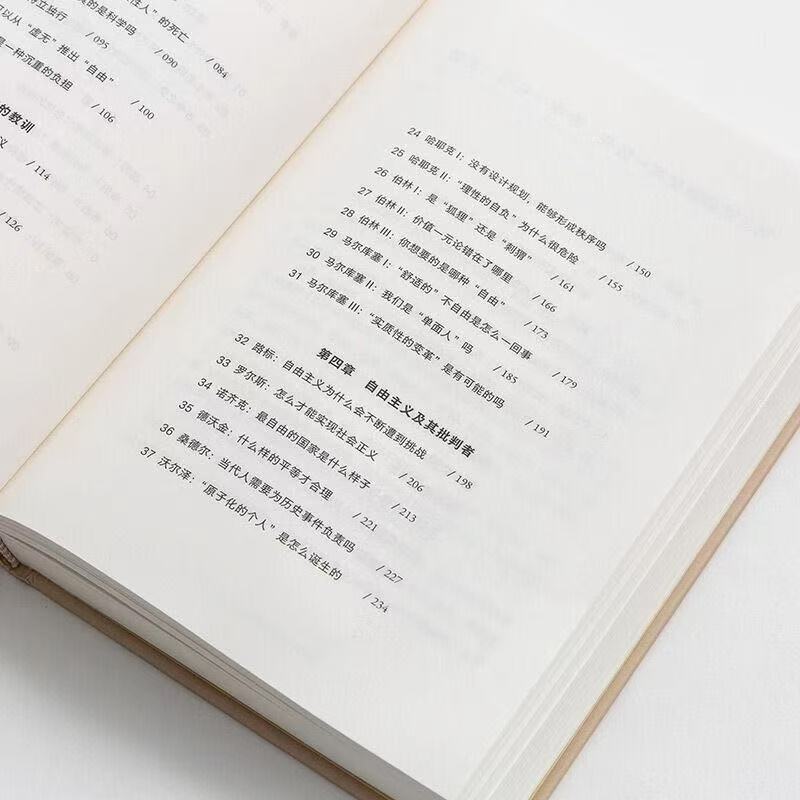 性人”的死亡 / 084
的是科学吗 / 090
立独行 / 095
以从“虚无”推出“自由” / 100
是一种沉重的负担 / 106
的教训
义 / 114
/ 126
24 哈耶克 I：没有设计规划，能够形成秩序吗 / 150
25 哈耶克 II：“理性的自负”为什么很危险 / 155
26 伯林 I：是“狐狸”还是“刺猬” / 161
27 伯林 II：价值一元论错在了哪里 / 166
28 伯林 III：你想要的是哪种“自由” / 173
29 马尔库塞 I：“舒适的”不自由是怎么一回事 / 179
30 马尔库塞 II：我们是“单面人”吗 / 185
31 马尔库塞 III：“实质性的变革”是有可能的吗 / 191
第四章 自由主义及其批判者
32 路标：自由主义为什么会不断遭到挑战 / 198
33 罗尔斯：怎么才能实现社会正义 / 206
34 诺齐克：最自由的国家是什么样子 / 213
35 德沃金：什么样的平等才合理 / 221
36 桑德尔：当代人需要为历史事件负责吗 / 227
37 沃尔泽：“原子化的个人”是怎么诞生的 / 234